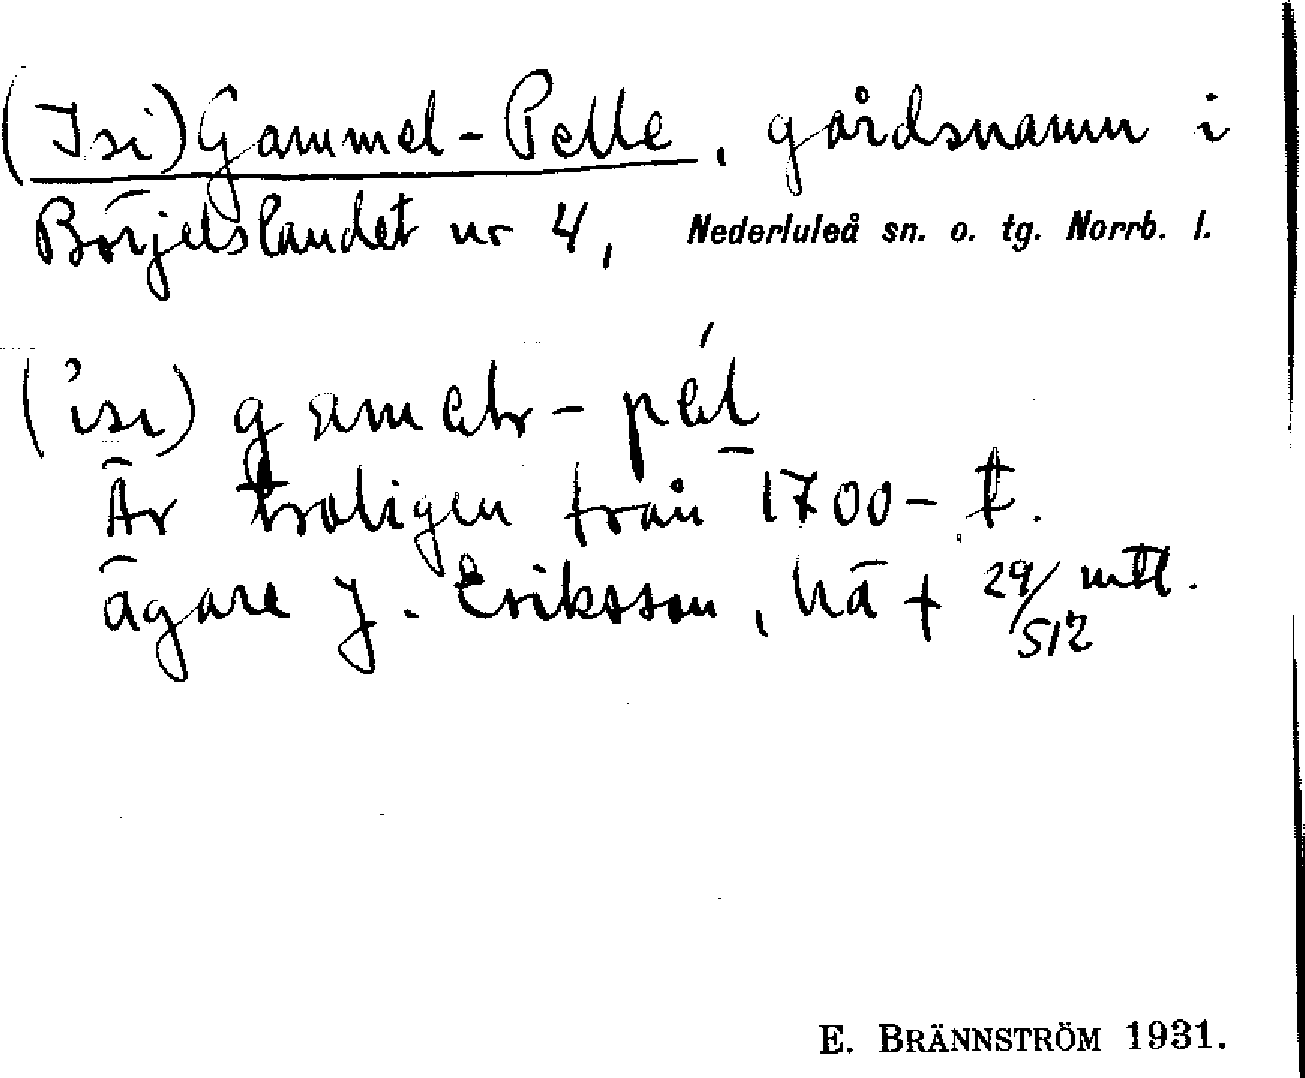 (Isi) Gammel-Pelle, gårdsnamn i
Börjelslandet nr 4, Nederluleå sn. o. tg. Norrb. l.
('isi) gamelr-pél
Är troligen från 1700-t.
ägare J. Eriksson, hä + 29/512 mtl.
E. BRÄNNSTRÖM 1931.